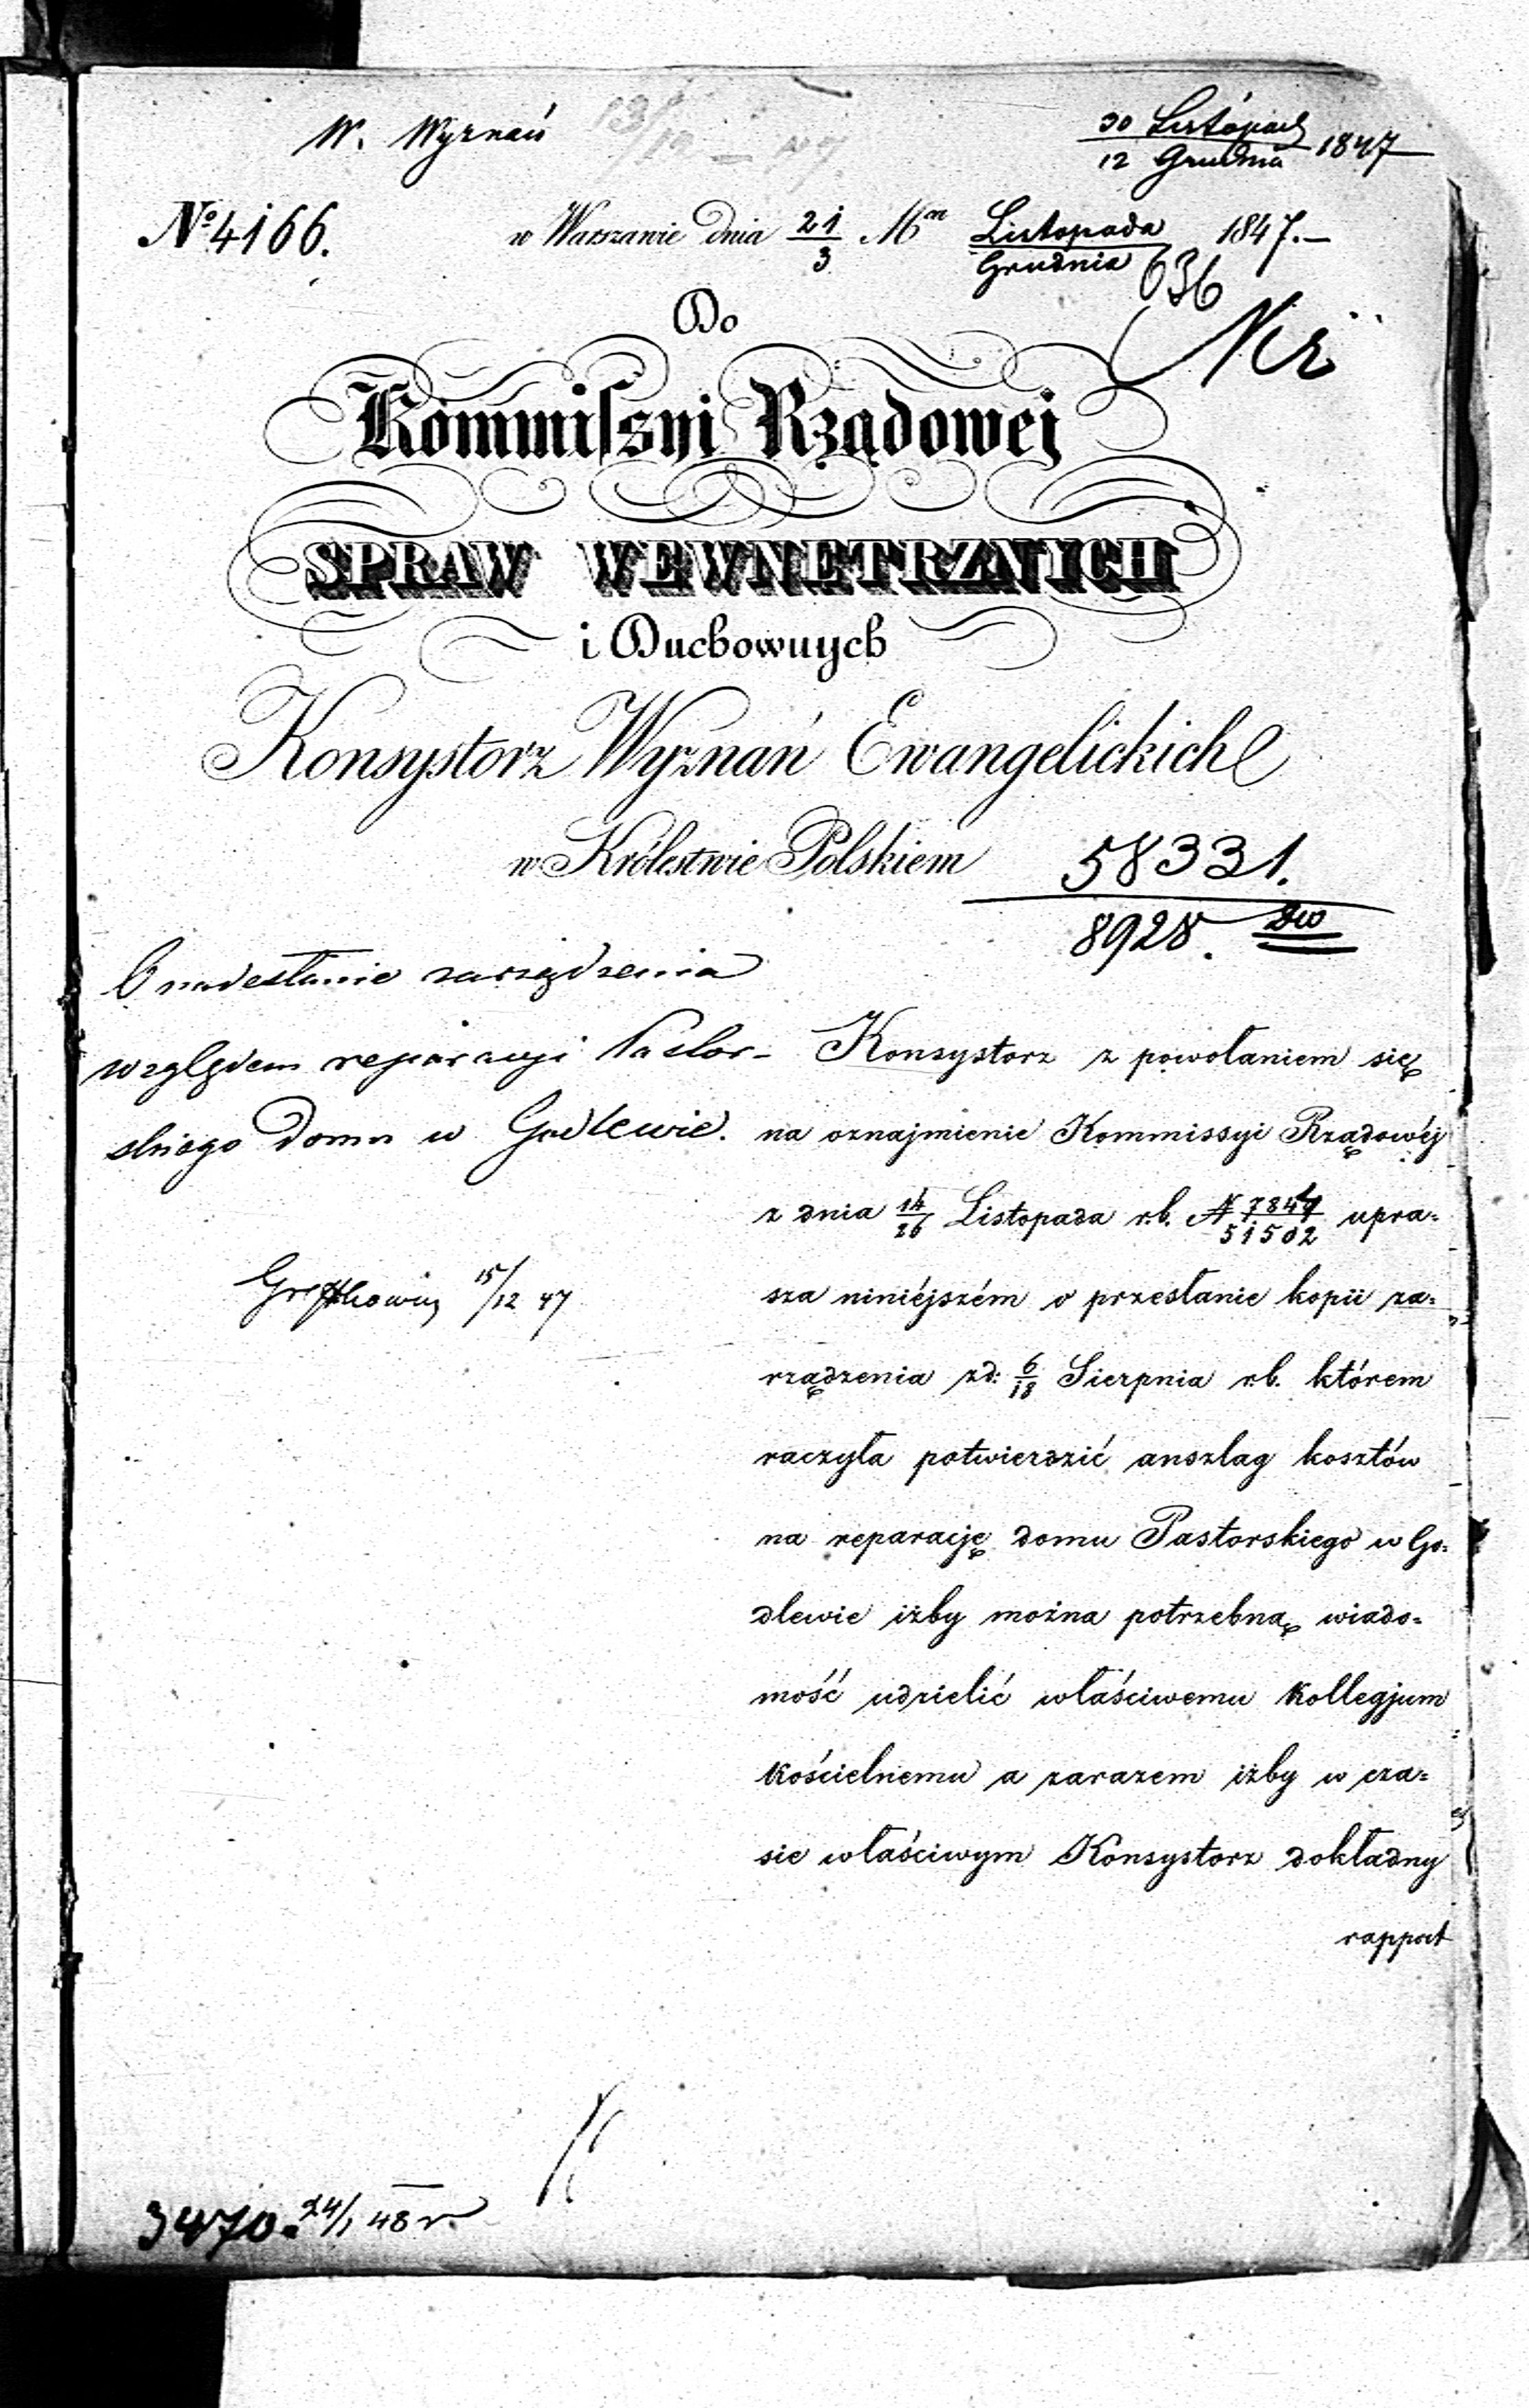 W. Wyznań
30 Listopad
12 Grudnia 1847
№ 4166.
w Warszawie dnia 21/3 M^ca Listopada/Grudnia 1847.
636
Do
Kommissyi Rządowej
SPRAW WEWNĘTRZNYCH
i Duchownych
Konsystorz Wyznań Ewangelickich
w Królestwie Polskiem
58331.
8928.
O nadesłanie zarządzenia
względem reparacyi Pastor-
skiego domu w Godlewie.
15/12 47
Konsystorz z powołaniem się
na oznajmienie Kommissyi Rządowéj
z dnia 14/26 Listopada r.b. № 7847/51502 upra=
sza niniéjszém o przesłanie kopii za=
rządzenia zd: 6/18 Sierpnia r.b. którem
raczyła potwierdzić anszlag kosztów
na reparację domu Pastorskiego w Go=
dlewie iżby można potrzebną wiado=
mość udzielić właściwemu Kollegjum
kościelnemu a zarazem iżby w cza=
sie właściwym Konsystorz dokładny
rapport
3470. 24/1 48 r.